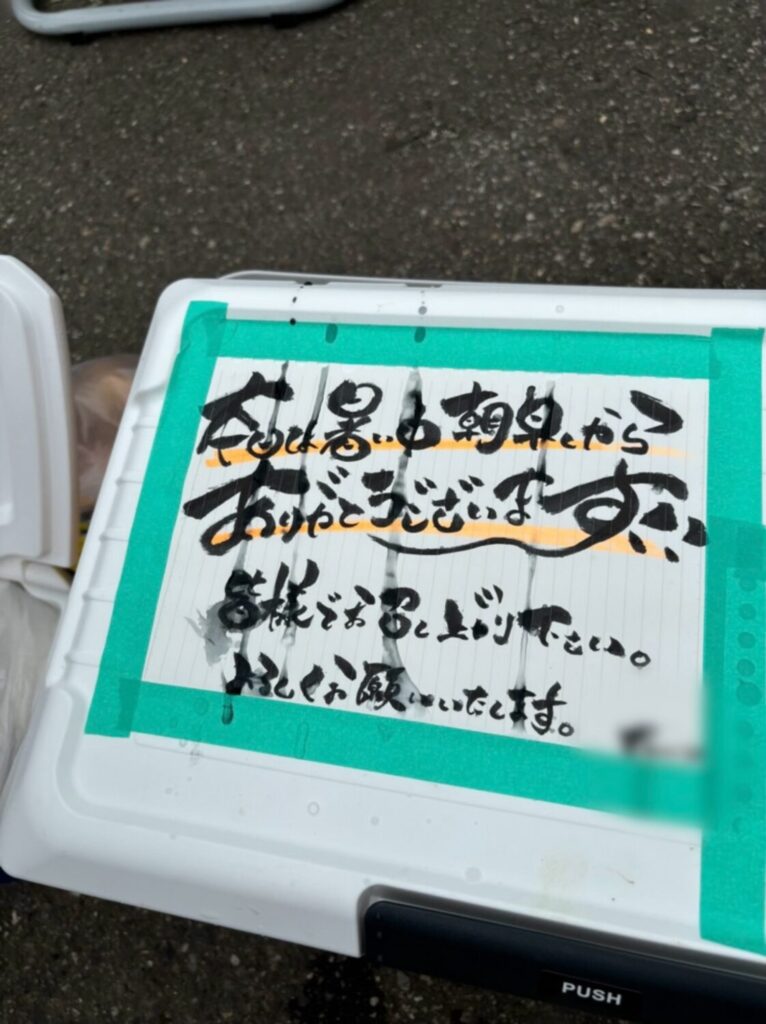 本日は暑い中朝早くから
ありがとうございます!!
皆様でお召し上がり下さい。
よろしくお願いいたします。
PUSH